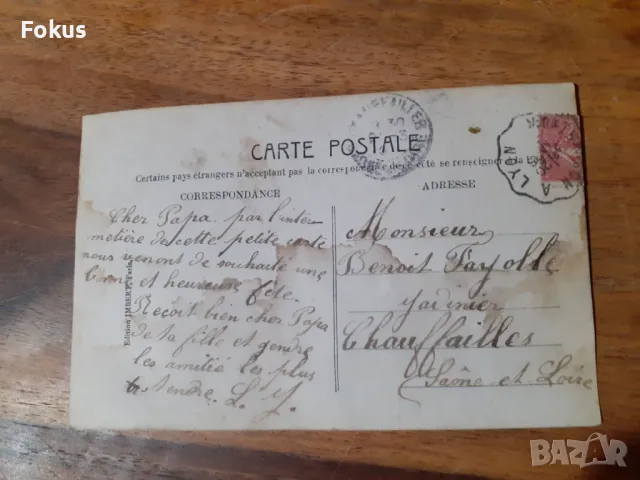 Fokus
CARTE POSTALE
Certains pays étrangers n'acceptant pas la correspondance de ce côté se renseigner à la
CORRESPONDANCE
ADRESSE
Cher Papa par l'inter
metière de cette petite carte
nous venons de souhaité une
bonne et heureuse fête.
Reçoit bien cher Papa
de ta fille et gendre
les amitié les plus
tendre. L. Y.
Monsieur
Benoit Fayolle
Jardinier
Chauffailles
Saône et Loire
Edition IMBERT, Paris
A LYON
BAZAR